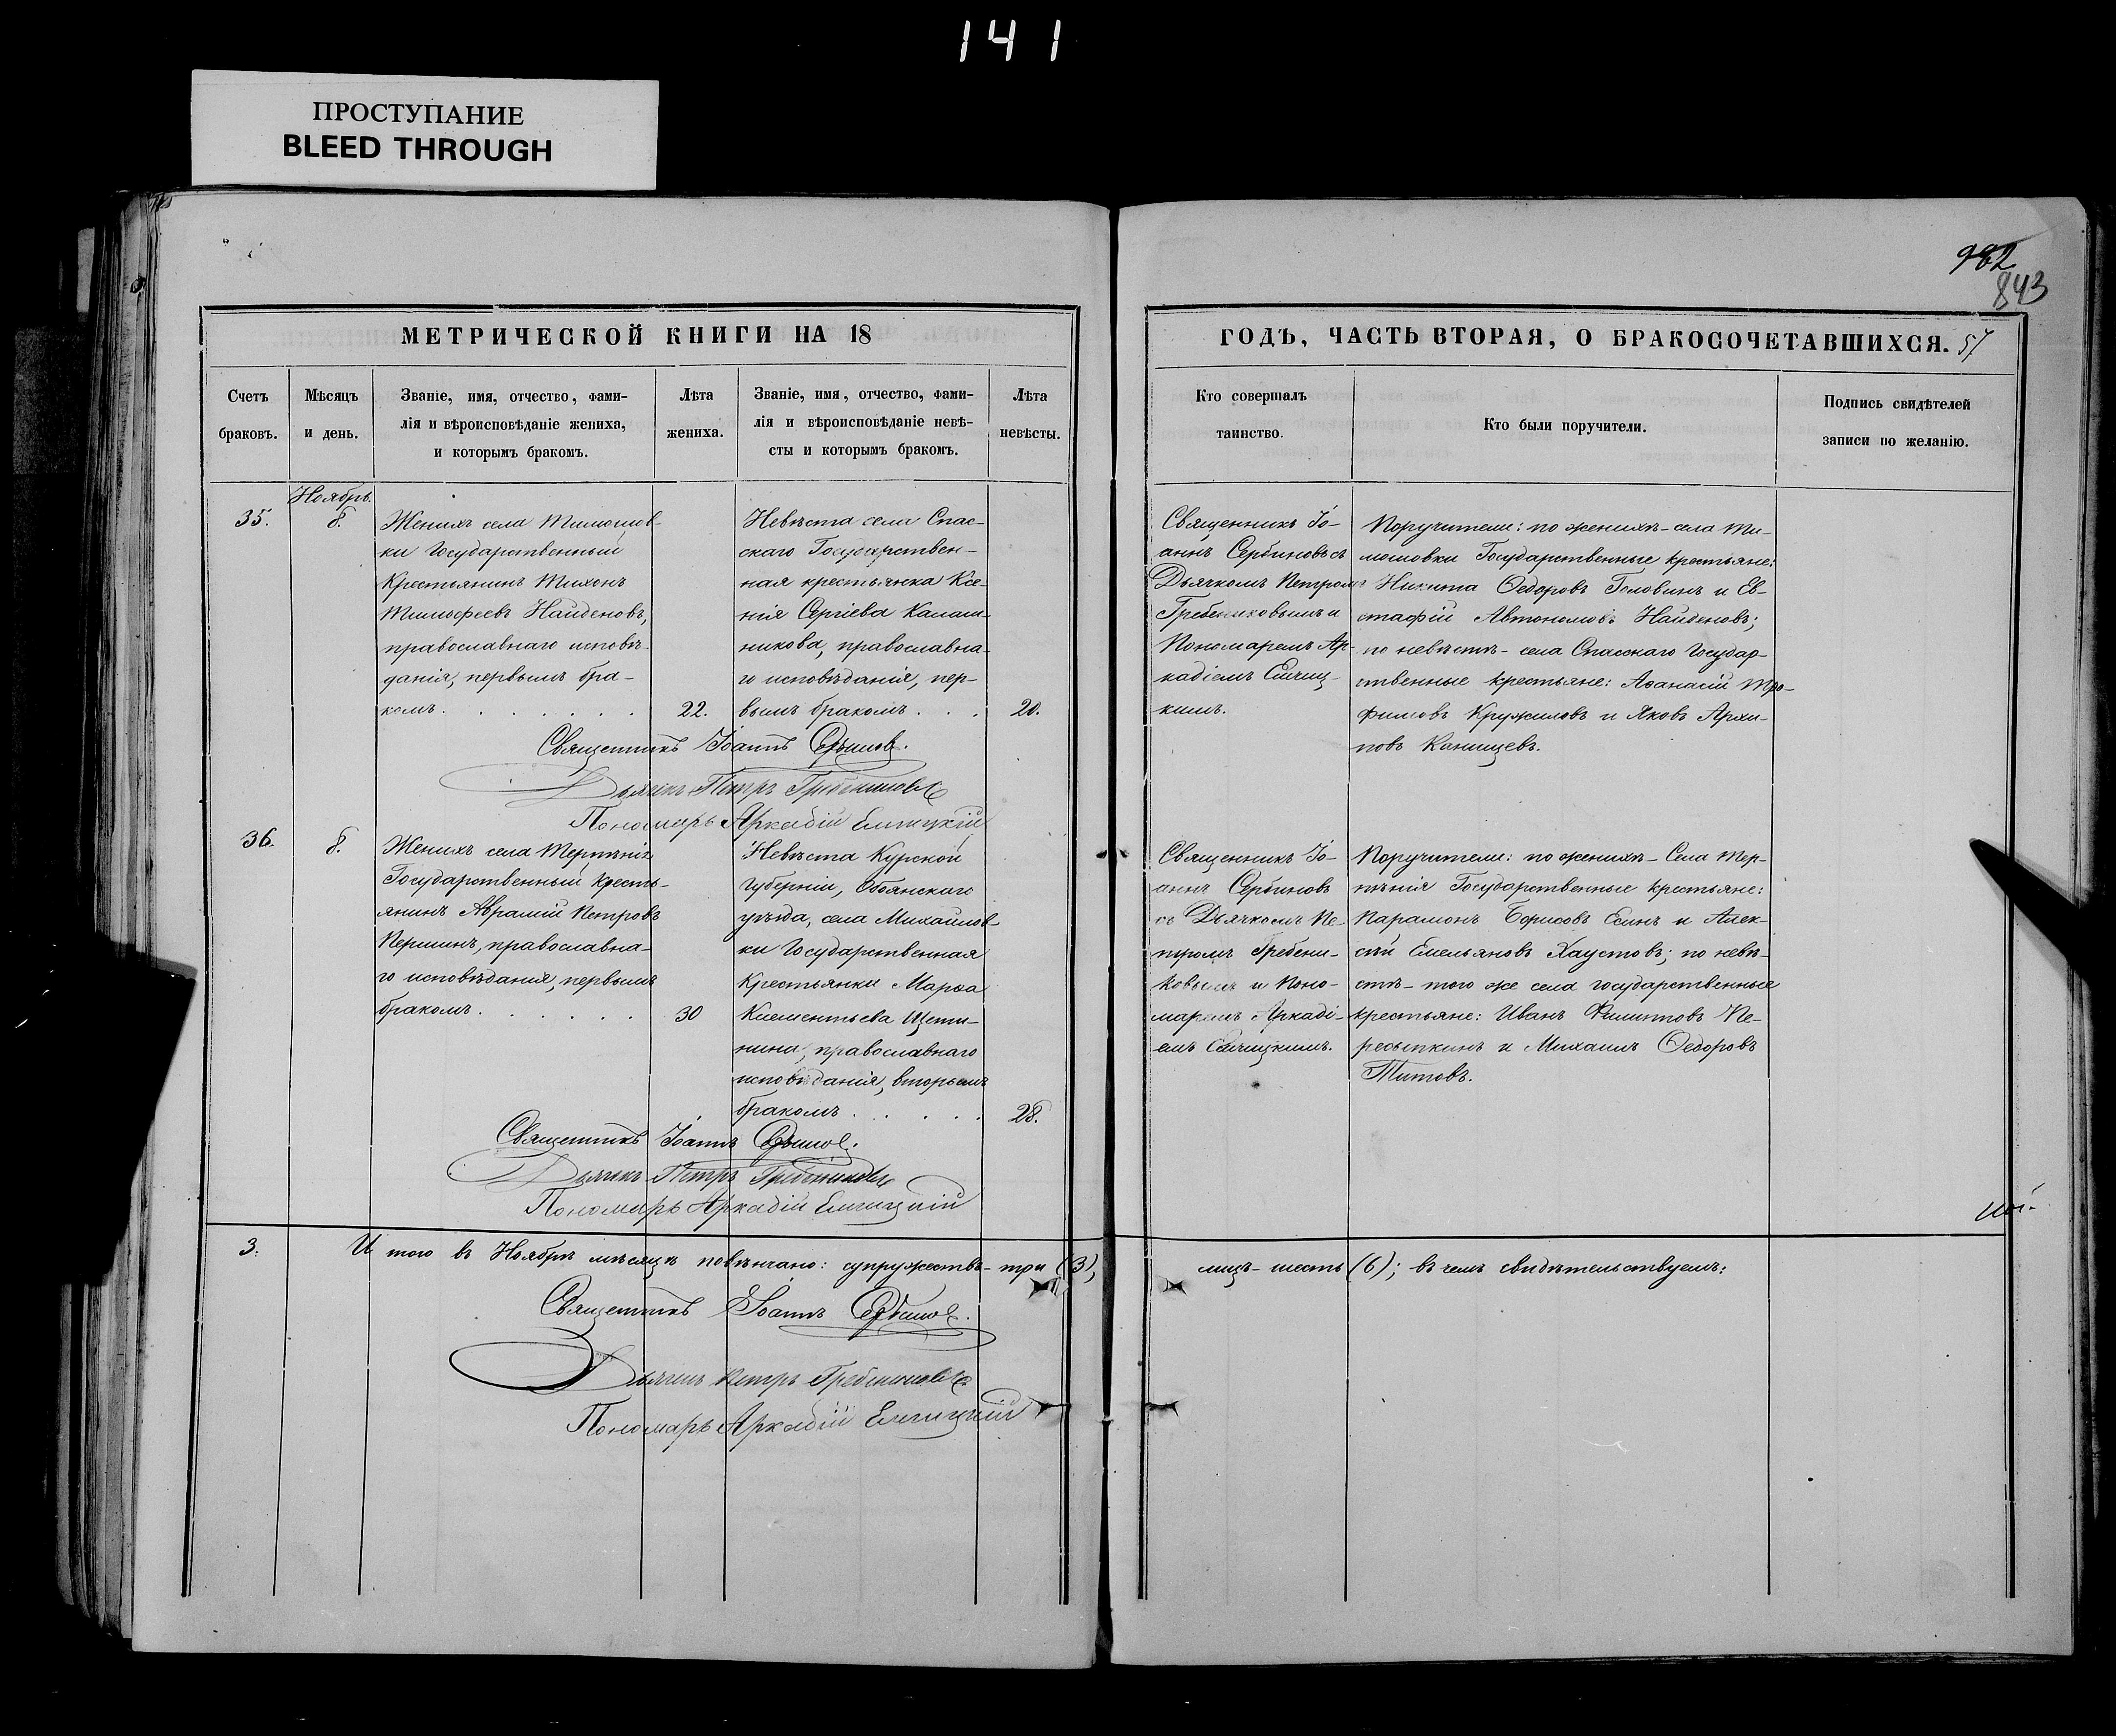 141
ПРОСТУПАНИЕ
BLEED THROUGH
982
843
МЕТРИЧЕСКОЙ КНИГИ НА 18
Счетъ браковъ.
Мѣсяцъ и день.
Званіе, имя, отчество, фами-
лія и вѣроисповѣданіе жениха,
и которымъ бракомъ.
Лѣта жениха.
Званіе, имя, отчество, фами-
лія и вѣроисповѣданіе невѣ-
сты и которымъ бракомъ.
Лѣта невѣсты.
ГОДЪ, ЧАСТЬ ВТОРАЯ, О БРАКОСОЧЕТАВШИХСЯ. 57
Кто совершалъ
таинство.
Кто были поручители.
Подпись свидѣтелей
записи по желанію.
Ноябрь.
35.
8.
Женихъ села Тимошов-
ки Государственный
Крестьянинъ Тихонъ
Тимофеевъ Найденовъ,
православнаго исповѣ-
данія, первымъ бра-
комъ.
22.
Невѣста села Спас-
скаго Государствен-
ная крестьянка Ксе-
нія Сергіева Калаш-
никова, православна-
го исповѣданія, пер-
вымъ бракомъ
20.
Священникъ Іо-
аннъ Сербиновъ съ
Дьячкомъ Петромъ
Гребениковымъ и
Пономаремъ Ар-
кадіемъ
кимъ.
Поручители: по женихѣ - села Ти-
мошовки Государственные крестьяне:
Никита Ѳедоровъ Головинъ и Ев-
стафій Автономовъ Найденовъ;
по невѣстѣ - села Спасскаго Государ-
ственные крестьяне: Аѳанасій Тро-
фимовъ Кружиловъ и Яковъ Архи-
повъ Канищевъ.
Священникъ Іоаннъ Сербиновъ.
Дьячекъ Петръ Гребениковъ
Пономарь Аркадій
36.
8.
Женихъ села Терпѣнія
Государственный Кресть-
янинъ Аврамій Петровъ
Першинъ, православна-
го исповѣданія, первымъ
бракомъ
30
Невѣста Курской
Губерніи, Обоянскаго
уѣзда, села Михайлов-
ки Государственная
Крестьянка Марѳа
Клементьева Щети-
нина, православнаго
исповѣданія, вторымъ
бракомъ
28.
Священникъ Іо-
аннъ Сербиновъ
съ Дьячкомъ Пе-
тромъ Гребени-
ковымъ и Поно-
маремъ Аркаді-
емъ
Поручители: по женихѣ - Села Тер-
пѣнія Государственные крестьяне:
Парамонъ Борисовъ Есинъ и Алек-
сѣй Емельяновъ Хаустовъ; по невѣ-
стѣ - того же села государственные
крестьяне: Иванъ Филиповъ Пе-
и Михаилъ Ѳедоровъ
Титовъ.
Священникъ Іоаннъ Сербиновъ.
Дьячекъ Петръ Гребениковъ
Пономарь Аркадій
3.
И того въ Ноябрѣ мѣсяцѣ повѣнчано: супружествъ - три (3),
лицъ - шесть (6); въ чемъ свидѣтельствуемъ:
Священникъ Іоаннъ Сербиновъ.
Дьячекъ Петръ Гребениковъ
Пономарь Аркадій